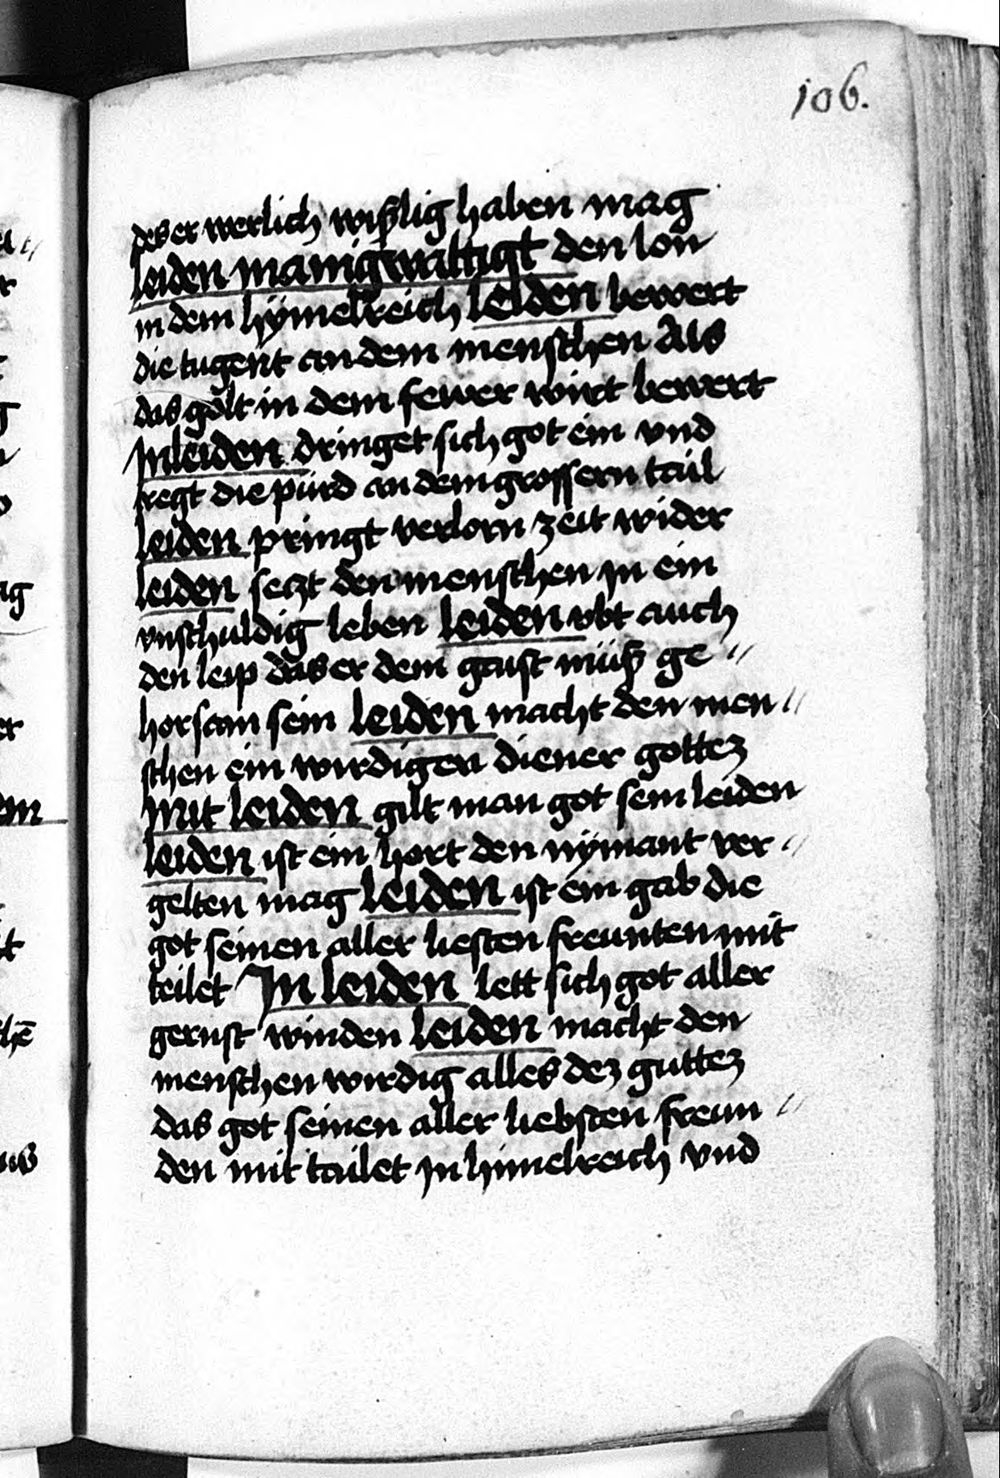 106.
des er werlich wißlig haben mag
leiden manigualtigt den lon
in dem hÿmelreich leiden bewert
die tugent an dem menschen Als
das golt in dem fewer wirt bewert
In leiden dringet sich got ein vnd
tregt die pürd an dem grossern tail
leiden pringt verlorn zeit wider
leiden seczt den menschen in ein
vnschuldig leben leiden vbt auch
den leip das er dem gaist müß ge //
horsam sein leiden macht den men //
schen ein wirdigen diener gottez
Mit leiden gilt man got sein leiden
leiden ist ein hort den nÿmant ver //
gelten mag leiden ist ein gab die
got seinen aller liesten freunten mit
teilet In leiden lett sich got aller
gernst winden leiden macht den
menschen wirdig alles dez guttez
das got seinen aller liebsten freun //
den mit tailet in himelreich vnd